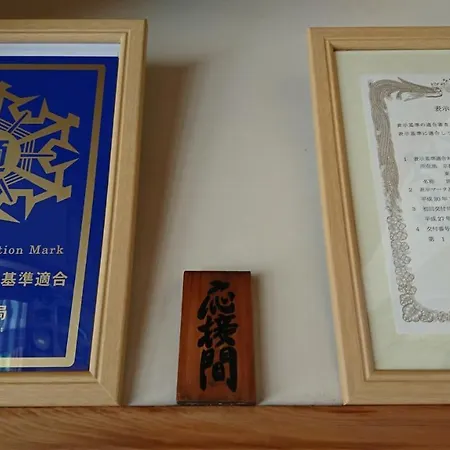 tion Mark
基準適合
局
応接間
表示
表示基準の適合審を
表示基準に適合して
1 表示基準適合
所在地
名称
2 表示マーク
平成30年
3 初回交付
平成27年
4 交付番号
第1